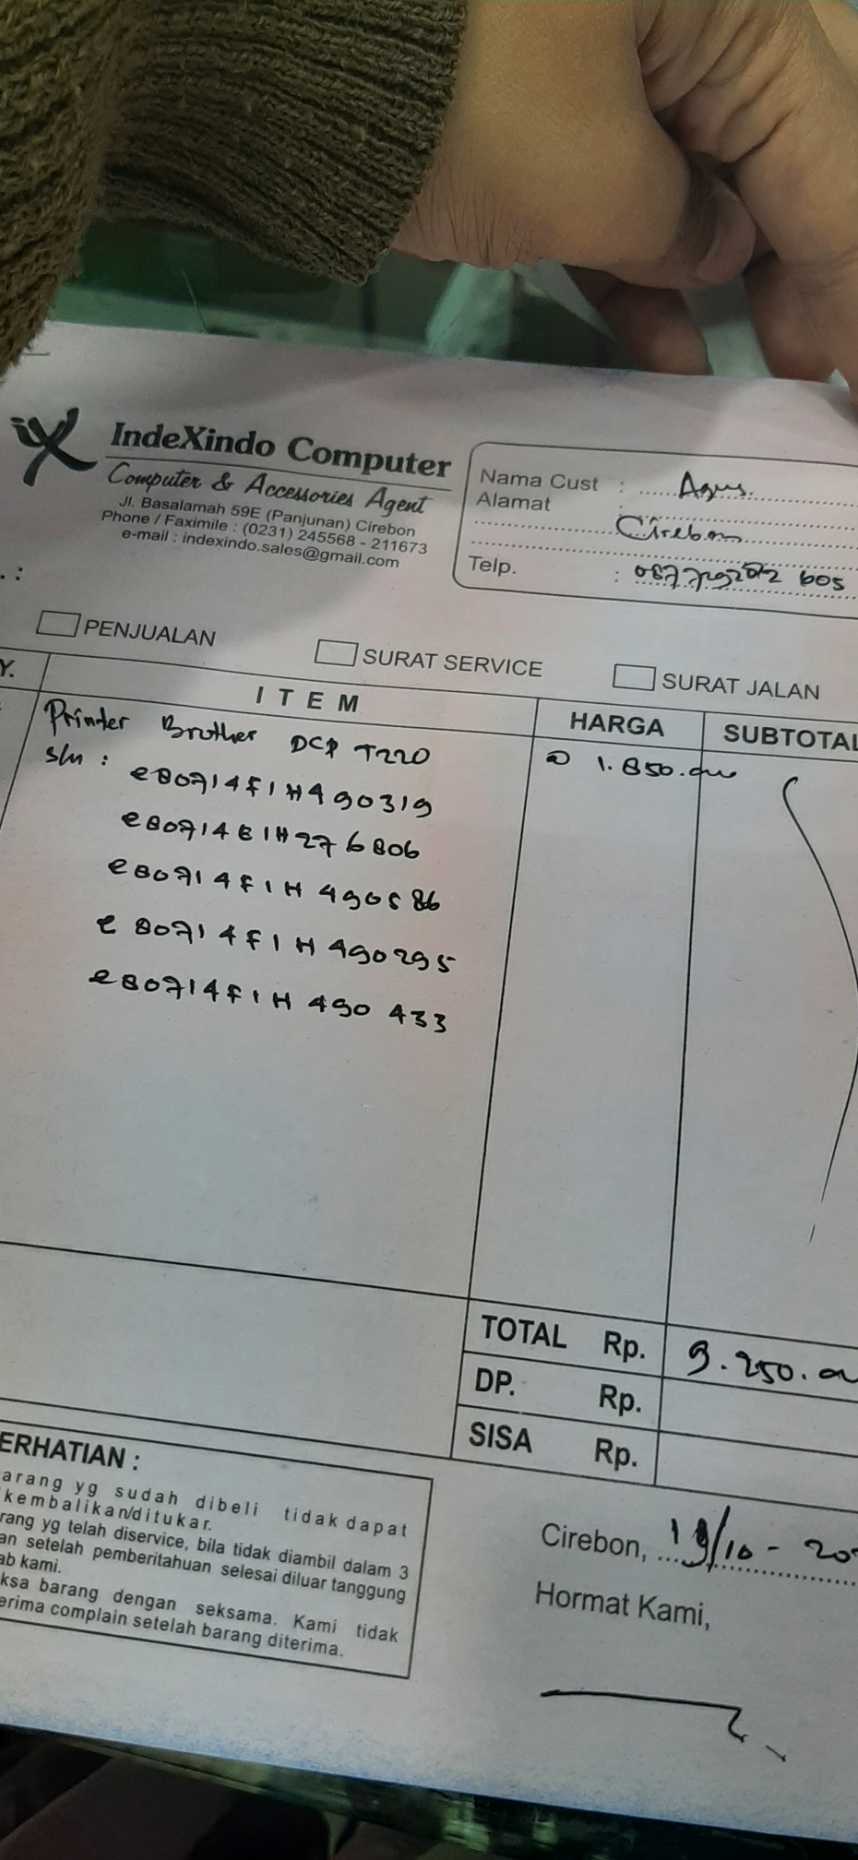 IndeXindo Computer
Computer & Accessories Agent
Jl. Basalamah 59E (Panjunan) Cirebon
Phone / Faximile : (0231) 245568 - 211673
e-mail : indexindo.sales@gmail.com
Nama Cust : Agus
Alamat
Cirebon
Telp. :
. :
PENJUALAN
SURAT SERVICE
SURAT JALAN
Y.
ITEM
HARGA
SUBTOTAL
Printer Brother DCP T220
@ 1.850.000
s/n : e80714F1H490319
e80714E1H276806
e80714F1H490586
e80714F1H490295
e80714F1H490433
TOTAL Rp. 9.250.
DP. Rp.
SISA Rp.
ERHATIAN :
arang yg sudah dibeli tidak dapat
kembalikan/ditukar.
rang yg telah diservice, bila tidak diambil dalam 3
an setelah pemberitahuan selesai diluar tanggung
ab kami.
ksa barang dengan seksama. Kami tidak
erima complain setelah barang diterima.
Cirebon, 19/10 - 20
Hormat Kami,